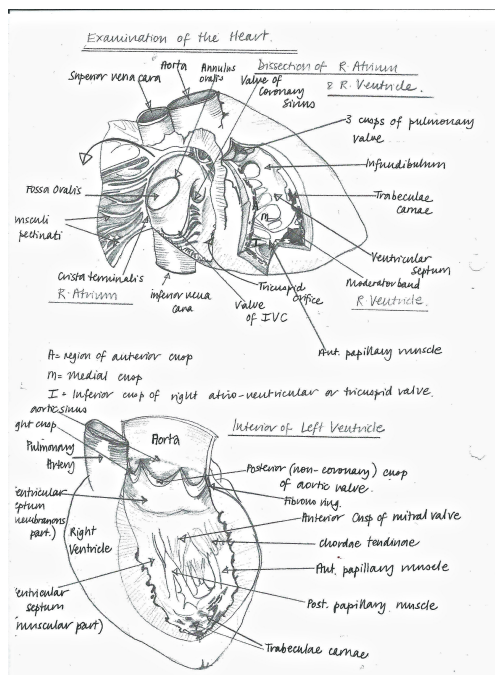 Examination of the Heart.
Dissection of R. Atrium
& R. Ventricle.
Superior vena cava
Aorta
Annulus
ovalis
Valve of
Coronary
Sinus
3 cusps of pulmonary
valve
Infundibulum
Trabeculae
carnae
Fossa Ovalis
musculi
pectinati
m
I
Ventricular
septum
Moderator band
R. Ventricle.
Crista terminalis
R. Atrium
inferior vena
cava
Valve
of IVC
Tricuspid
orifice
Ant. papillary muscle
A = region of anterior cusp
m = medial cusp
I = Inferior cusp of right atrio-ventricular or tricuspid valve.
aortic sinus
ght cusp
Pulmonary
Artery
Aorta
Interior of Left Ventricle
Posterior (non-coronary) cusp
of aortic valve.
Fibrous ring.
Anterior Cusp of mitral valve
chordae tendinae
Ant. papillary muscle
Post. papillary muscle
Trabeculae carnae
entricular
eptum
membranous
part.)
Right
Ventricle
entricular
septum
muscular part)